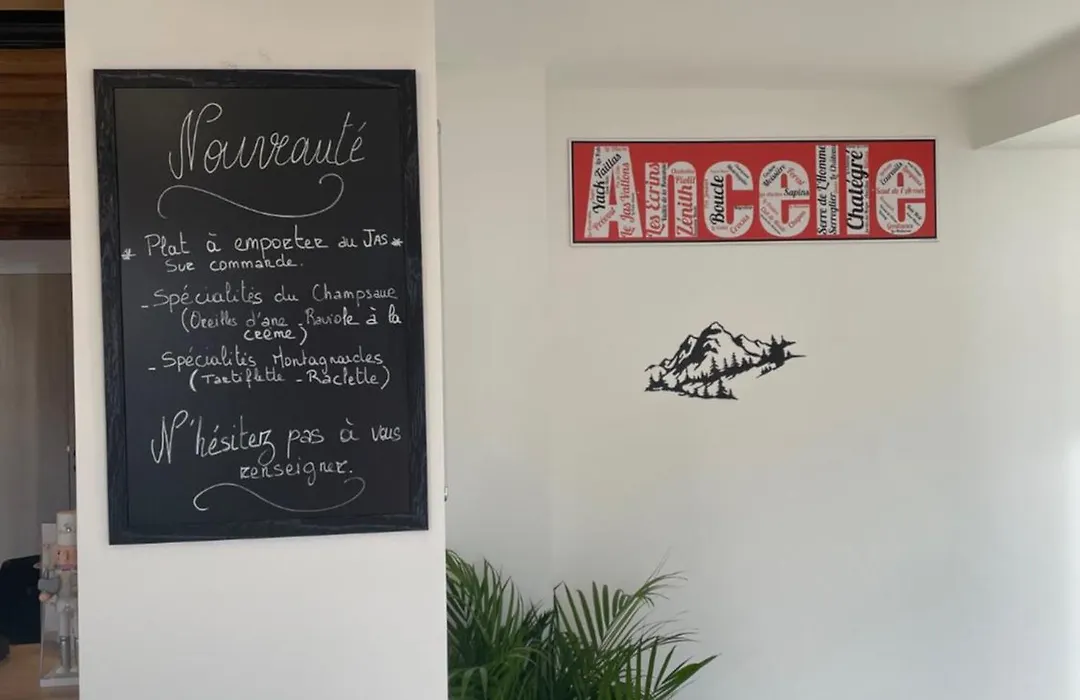 Nouveauté
* Plat à emporter au JAS *
Sur commande.
- Spécialités du Champsaur
(Oreilles d'ane - Raviole à la
crème)
- Spécialités Montagnardes
(Tartiflette - Raclette)
N'hésitez pas à vous
renseigner.
Ancelle
Yack
Taillas
Le Jas
Vallons
Les Ecrins
Zenith
Boude
Sapins
Serre de L'homme
Serreplier
Chategré
Saut de l'Ane